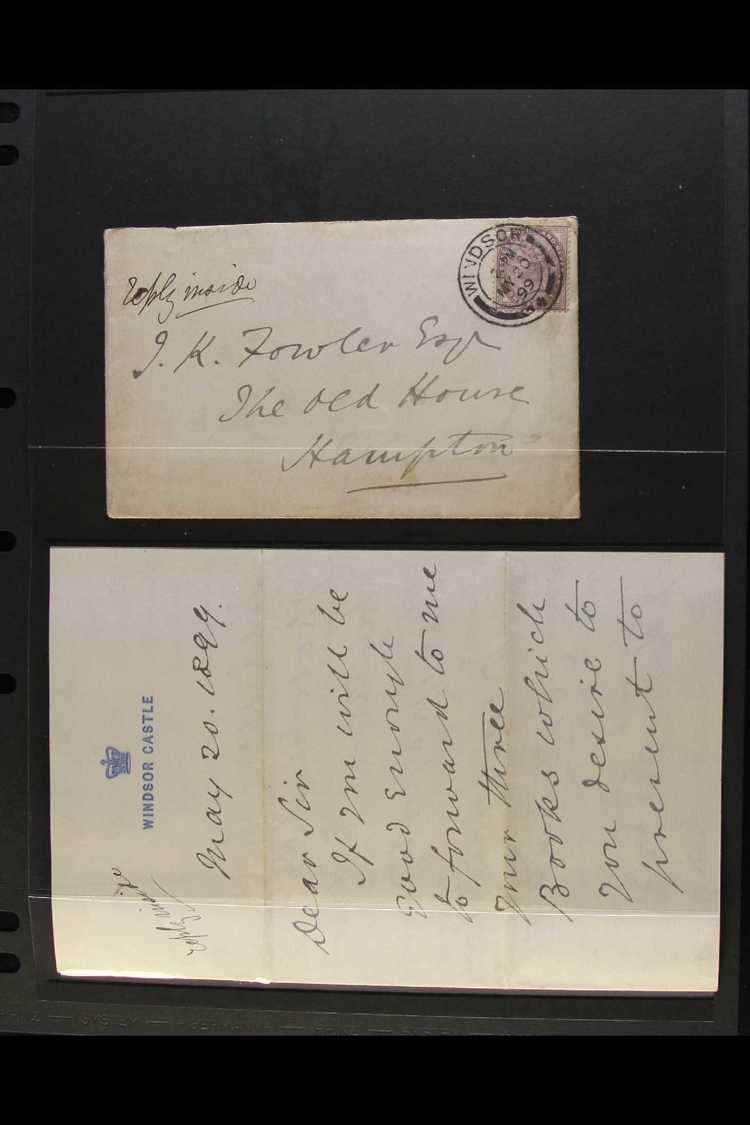 reply inside
J. K. Fowler Esqr
The Old House
Hampton
WINDSOR
MY 20
99
reply inside
WINDSOR CASTLE
May 20. 1899.
Dear Sir
If you will be
good enough
to forward to me
your three
Books which
you desire to
present to